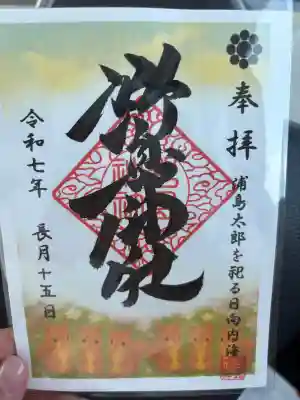 奉拝
浦島太郎を祀る日向内海
野島神社
令和七年 長月十五日